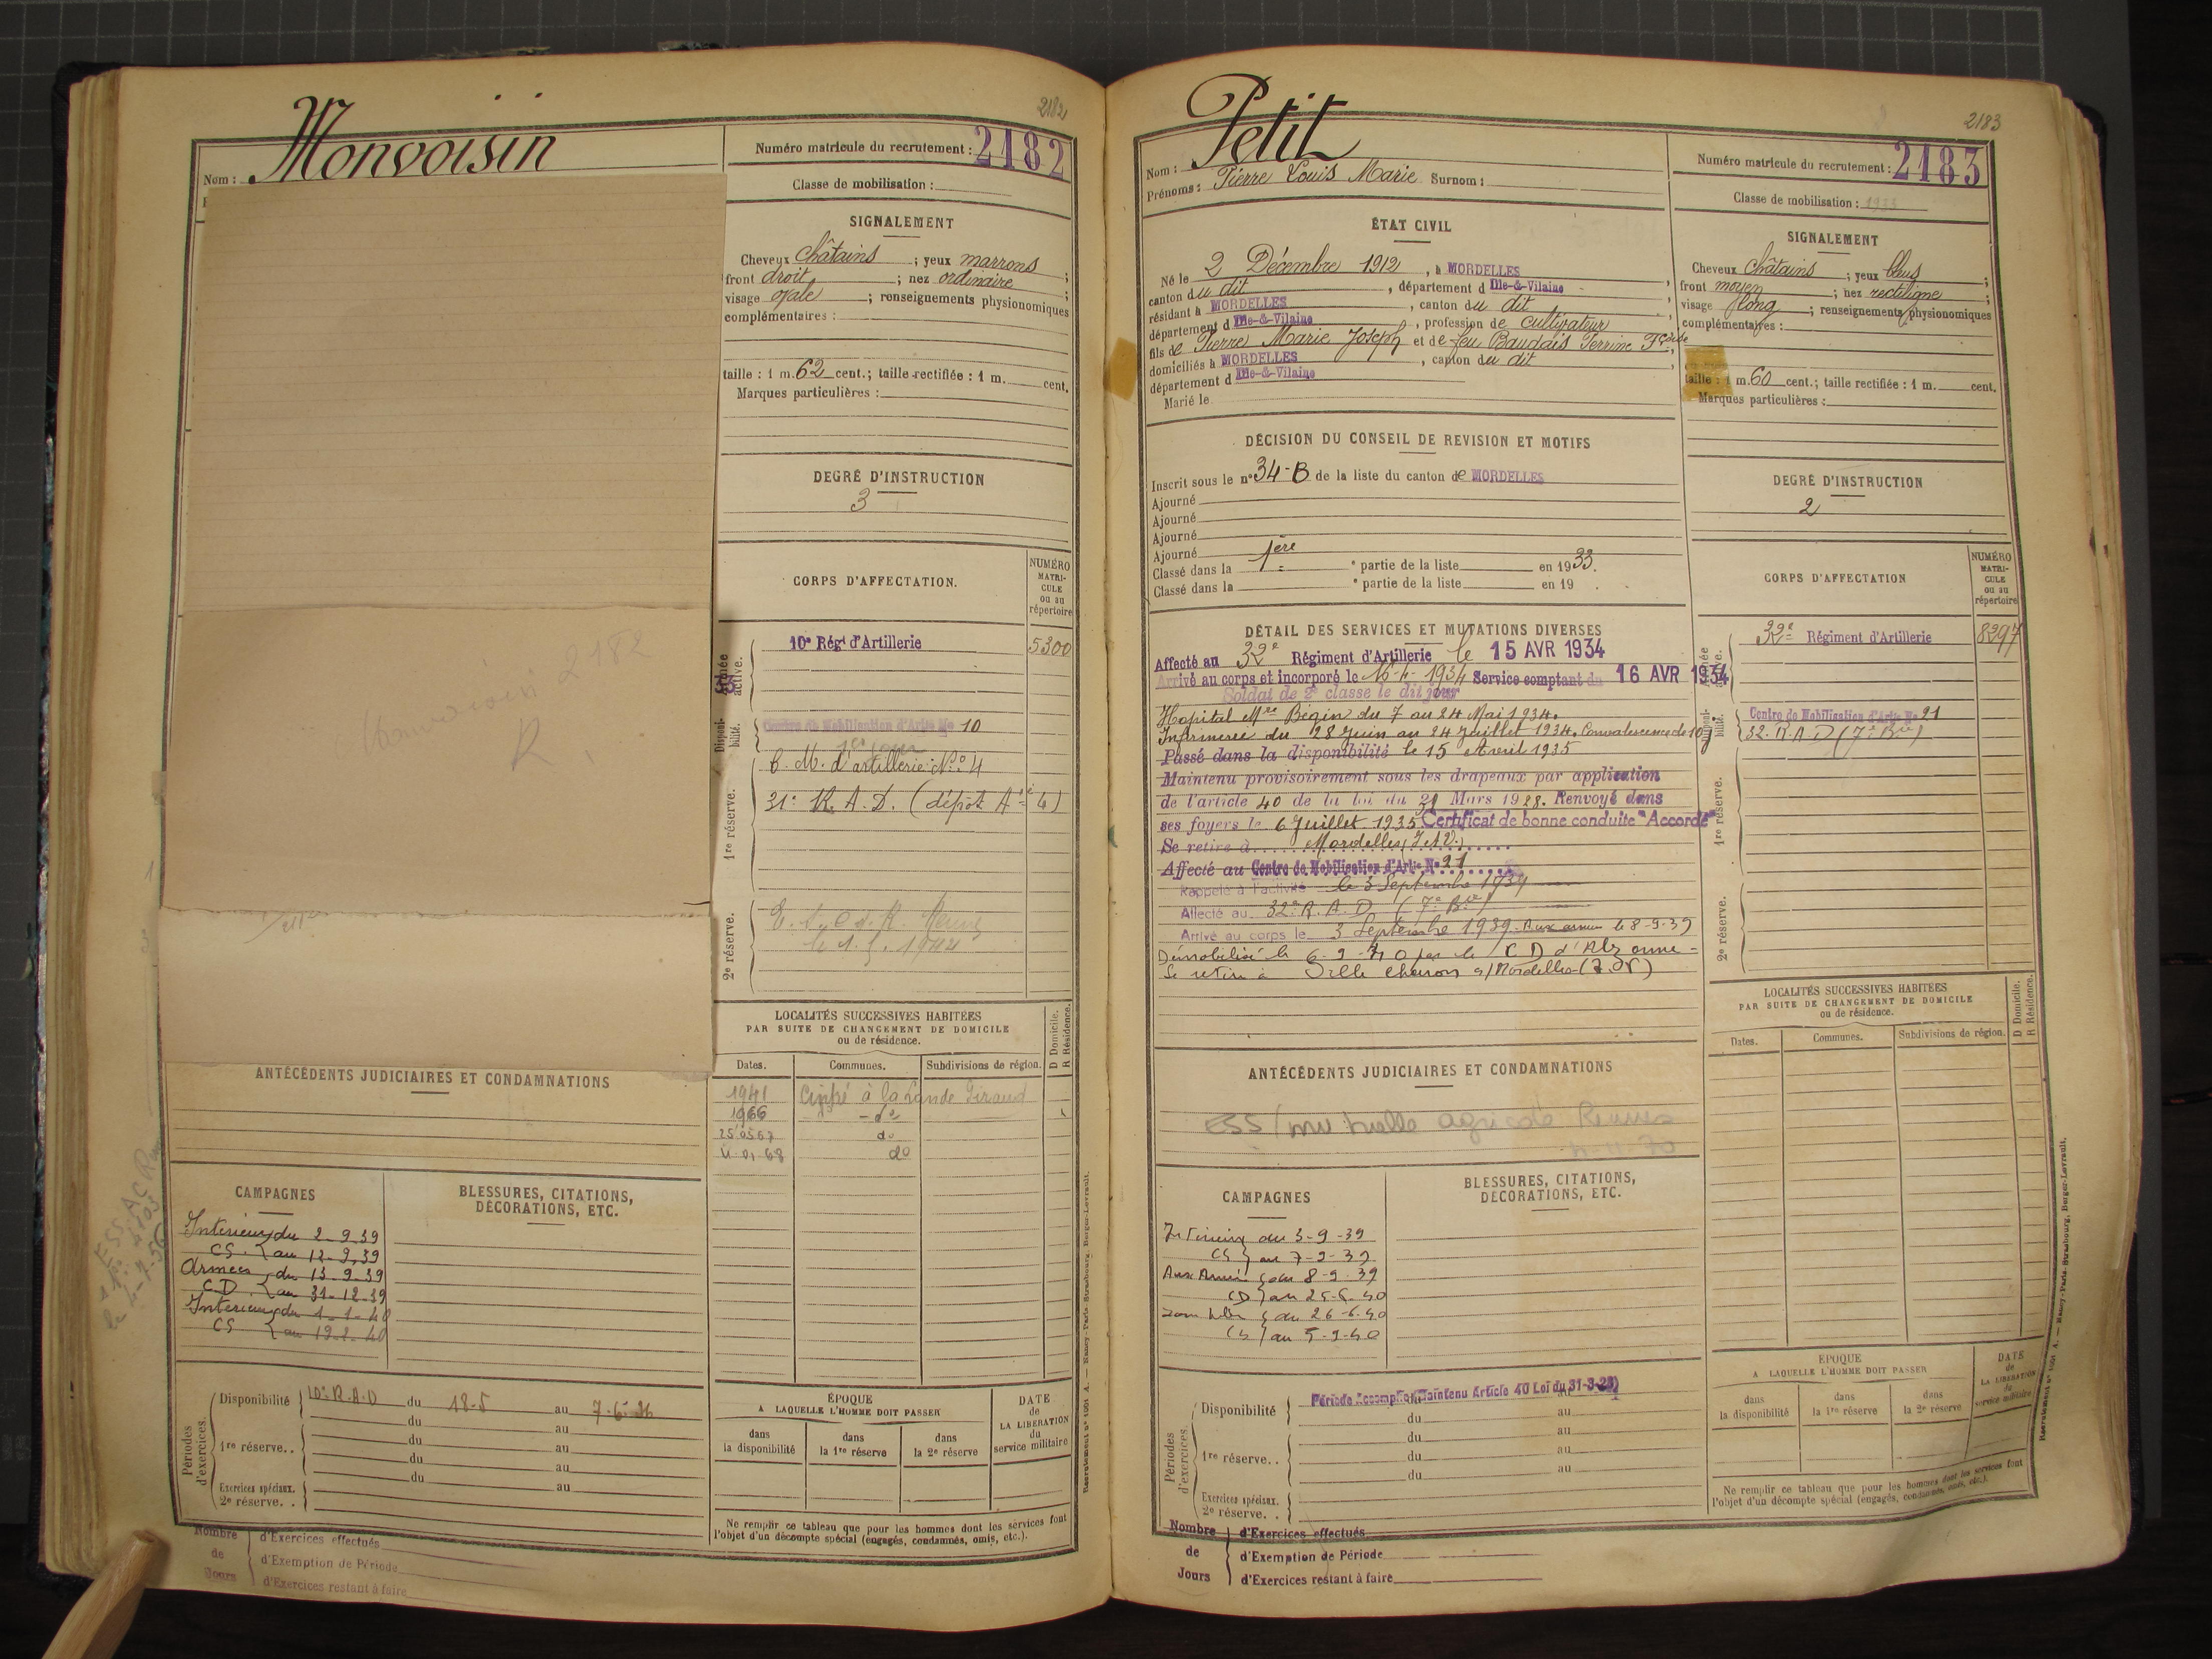 2182
Monvoisin
Nom :
Numéro matricule du recrutement : 2182
Classe de mobilisation :
SIGNALEMENT
Cheveux châtains ; yeux marrons ;
front droit ; nez ordinaire ;
visage ovale ; renseignements physionomiques
complémentaires :
taille : 1 m. 62 cent.; taille rectifiée : 1 m. cent.
Marques particulières :
DEGRÉ D'INSTRUCTION
3
CORPS D'AFFECTATION.
NUMÉRO MATRI-CULE ou au répertoire
Armée active.
10e Régt d'Artillerie 5300
Disponi-bilité.
Centre de Mobilisation d'Artie No 10
1re réserve.
C. M. d'artillerie No 4
31e R. A. D. (dépôt Aie 4)
2e réserve.
Monvoisin 2182
R.
LOCALITÉS SUCCESSIVES HABITÉES
PAR SUITE DE CHANGEMENT DE DOMICILE
ou de résidence.
D Domicile.
R Résidence.
Dates. Communes. Subdivisions de région.
1941 à la Lande Giraud
1966 - do
25 05 67 do
do
ANTÉCÉDENTS JUDICIAIRES ET CONDAMNATIONS
CAMPAGNES
Intérieur du 2-9-39
CS. au 12-9-39
Armées du 13-9-39
CD. au 31-12-39
Intérieur du 1-1-40
CS au 19-2-40
BLESSURES, CITATIONS,
DÉCORATIONS, ETC.
Périodes d'exercices.
Disponibilité 10e R.A.D du 18-5 au 7-6-36
du au
1re réserve.. du au
du au
du au
Exercices spéciaux.
2e réserve. .
ÉPOQUE
A LAQUELLE L'HOMME DOIT PASSER
dans la disponibilité
dans la 1re réserve
dans la 2e réserve
DATE de LA LIBÉRATION du service militaire
Ne remplir ce tableau que pour les hommes dont les services font
l'objet d'un décompte spécial (engagés, condamnés, omis, etc.).
Nombre de Jours
d'Exercices effectués
d'Exemption de Période
d'Exercices restant à faire
Recrutement n° 1001 A. — Nancy-Paris-Strasbourg, Berger-Levrault.
2183
Petit
Nom :
Prénoms : Pierre Louis Marie Surnom :
Numéro matricule du recrutement : 2183
Classe de mobilisation : 1933
ÉTAT CIVIL
Né le 2 Décembre 1912, à MORDELLES
canton du dit, département d'Ille-&-Vilaine
résidant à MORDELLES, canton du dit
département d'Ille-&-Vilaine, profession de cultivateur
fils de Pierre Marie Joseph et de feu Baudais Perrine Fçoise
domiciliés à MORDELLES, canton du dit
département d'Ille-&-Vilaine
Marié le
SIGNALEMENT
Cheveux châtains ; yeux bleus ;
front moyen ; nez rectiligne ;
visage long ; renseignements physionomiques
complémentaires :
taille : 1 m. 60 cent.; taille rectifiée : 1 m. cent.
Marques particulières :
DÉCISION DU CONSEIL DE REVISION ET MOTIFS
Inscrit sous le n° 34-B de la liste du canton de MORDELLES
Ajourné
Ajourné
Ajourné
Ajourné
Classé dans la 1ère partie de la liste en 1933.
Classé dans la e partie de la liste en 19 .
DEGRÉ D'INSTRUCTION
2
CORPS D'AFFECTATION
NUMÉRO MATRI-CULE ou au répertoire
Armée active.
32e Régiment d'Artillerie 8297
Disponi-bilité.
Centre de Mobilisation d'Artie No 21
32. R.A.D (7e Bie)
1re réserve.
2e réserve.
DÉTAIL DES SERVICES ET MUTATIONS DIVERSES
Affecté au 32e Régiment d'Artillerie le 15 AVR 1934
Arrivé au corps et incorporé le 16-4-1934 Service comptant du 16 AVR 1934
Soldat de 2e classe le dit jour
Hopital Mre Bégin du 7 au 24 Mai 1934.
Infirmerie du 28 Juin au 24 Juillet 1934. Convalescence de 10 j
Passé dans la disponibilité le 15 Avril 1935
Maintenu provisoirement sous les drapeaux par application
de l'article 40 de la loi du 31 Mars 1928. Renvoyé dans
ses foyers le 6 Juillet 1935 Certificat de bonne conduite "Accordé"
Se retire à Mordelles (I et V.)
Affecté au Centre de Mobilisation d'Artie No 21
Rappelé à l'activité le 3 Septembre 1939
Affecté au 32e R.A.D (7e Bie)
Arrivé au corps le 3 Septembre 1939. Aux armées le 8-9-39
Démobilisé le 6-9-40 par le CD d'Alzonne -
Se retire à Ville chevron s/Mordelles (I.&V)
LOCALITÉS SUCCESSIVES HABITÉES
PAR SUITE DE CHANGEMENT DE DOMICILE
ou de résidence.
D Domicile.
R Résidence.
Dates. Communes. Subdivisions de région.
ANTÉCÉDENTS JUDICIAIRES ET CONDAMNATIONS
ESS / mutuelle agricole Rennes
CAMPAGNES
Intérieur du 3-9-39
CS au 7-9-39
Aux Armées du 8-9-39
CD au 25-6-40
zone libre du 26-6-40
CS au 5-9-40
BLESSURES, CITATIONS,
DÉCORATIONS, ETC.
Périodes d'exercices.
Période accomplie (Maintenu Article 40 Loi du 31-3-28)
Disponibilité du au
du au
1re réserve. . du au
du au
Exercices spéciaux.
2e réserve. .
ÉPOQUE
A LAQUELLE L'HOMME DOIT PASSER
dans la disponibilité
dans la 1re réserve
dans la 2e réserve
DATE de LA LIBÉRATION du service militaire
Ne remplir ce tableau que pour les hommes dont les services font
l'objet d'un décompte spécial (engagés, condamnés, omis, etc.).
Nombre de Jours
d'Exercices effectués
d'Exemption de Période
d'Exercices restant à faire
Recrutement n° 1001 A. — Nancy-Paris-Strasbourg, Berger-Levrault.